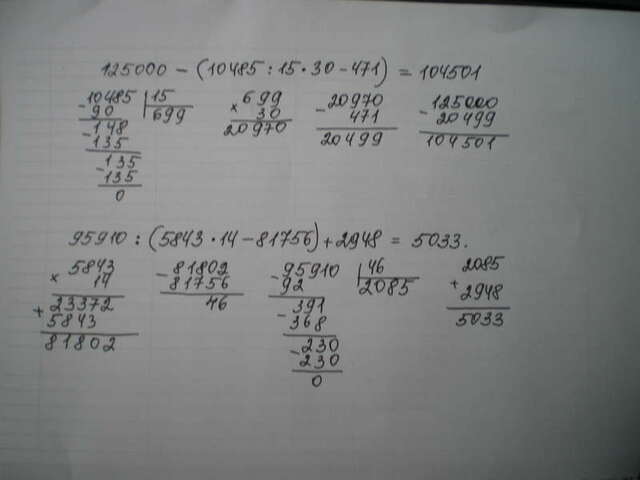 125000 - (10485 : 15 · 30 - 471) = 104501
- 10485 | 15
90 699
- 148
135
- 135
135
0
× 699
30
20970
- 20970
471
20499
- 125000
20499
104501
95910 : (5843 · 14 - 81756) + 2948 = 5033.
× 5843
14
+ 23372
5843
81802
- 81802
81756
46
- 95910 | 46
92 2085
- 391
368
- 230
230
0
2085
+ 2948
5033